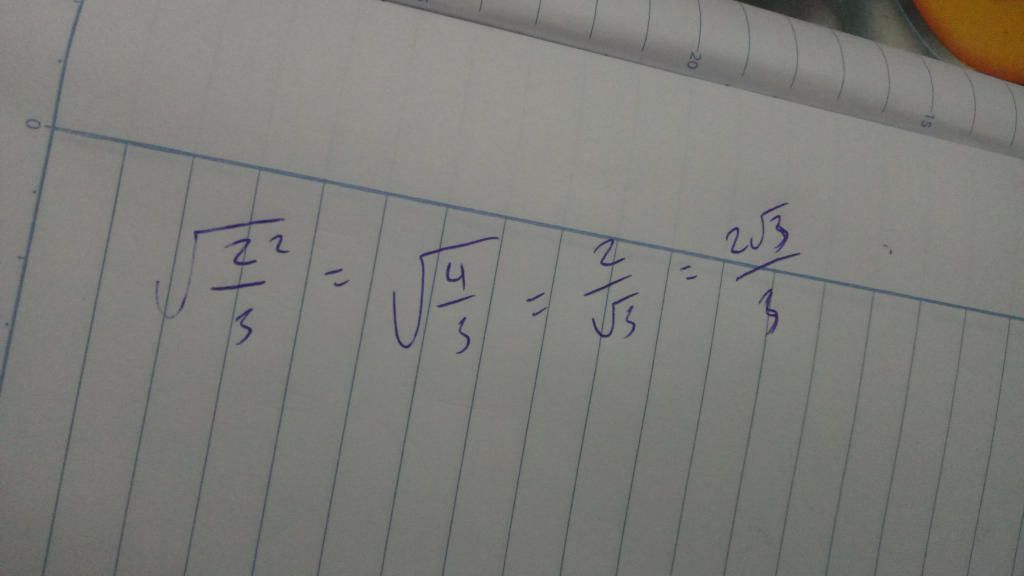 20
15
0
√(2²/3) = √(4/3) = 2/√3 = 2√3/3